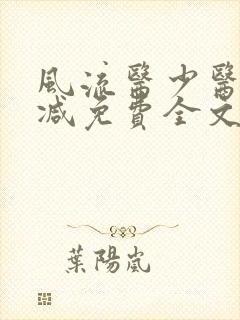 風流醫少醫
减免費全文
葉陽嵐